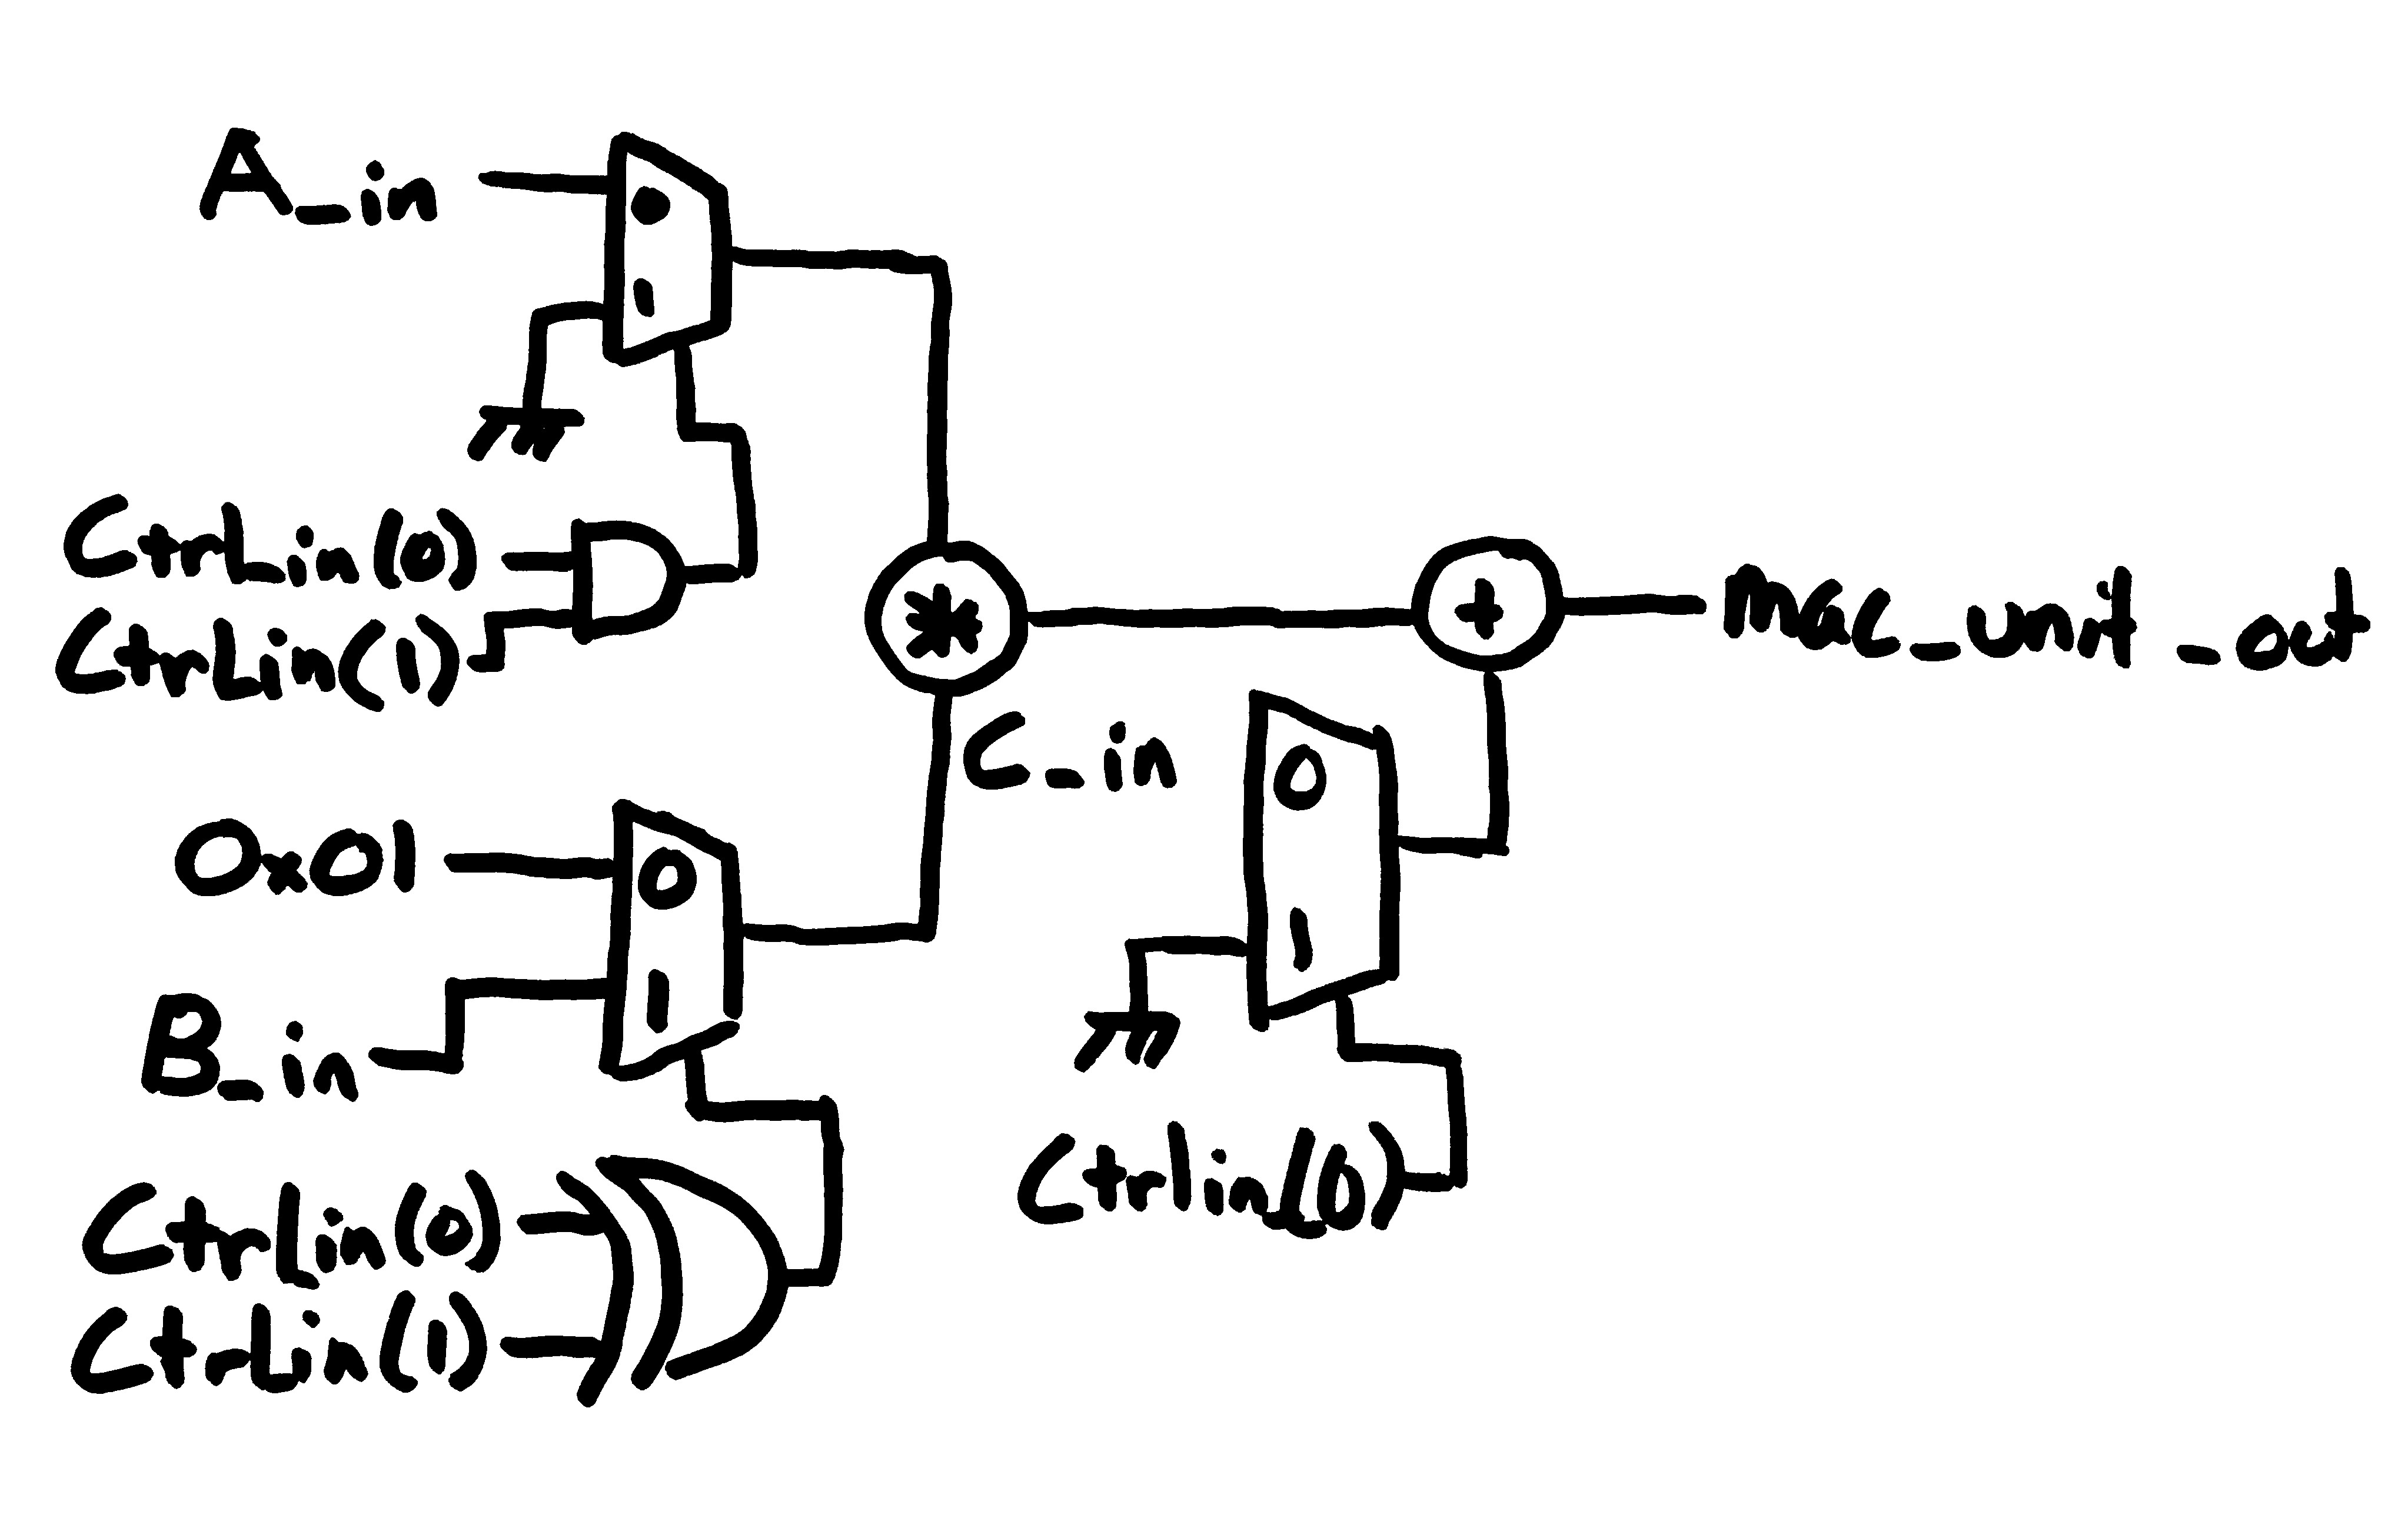 A_in
0
1
CtrLin(0)
CtrLin(1)
*
+
mac_unit_out
C_in
0
1
0x01
0
1
B_in
Ctrlin(0)
Ctrlin(0)
Ctrlin(1)